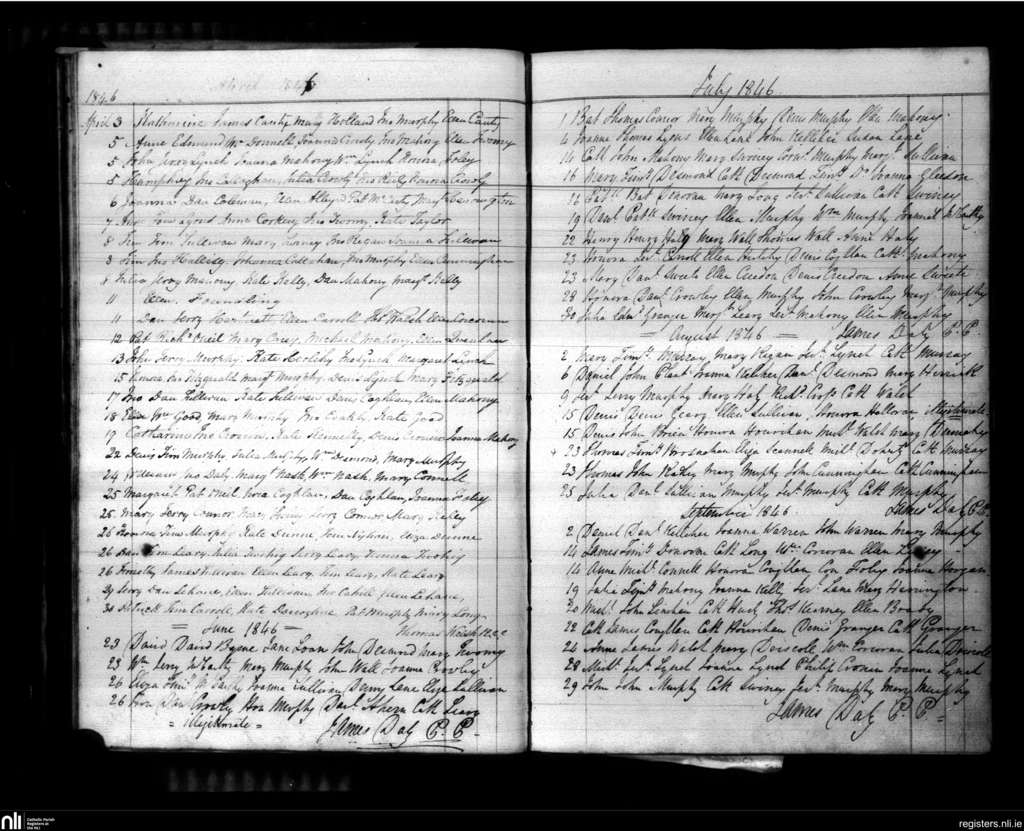 April 1846
1846
April 3 Katharine James Canty Mary Holland Jno Murphy Ellen Canty
5 Anne Edmund Wm Donnell Joanna Crowly Jno Mahony Ellen Twomy
5 John Jerry Lynch Joanna Mahony Wm Lynch Honora Foley
5 Humphrey Jno Callaghan, Julia Crowly Jno Kiely Honora Crowly
6 Joanna Dan Coleman, Ellen Pat McCarty Margt
7 Jno Tim Lyons Anne Corkery Jno Twomy, Kate Taylor
8 Tim Tim Sullivan Mary Jno Regan Joanna Sullivan
8 Jno Johanna Callaghan, Jno Murphy Ellen Cunningham
8 Julia Jerry Mahony Kate Kelly, Dan Mahony Margt Kelly
11 Ellen. Foundling
11 Dan Jerry Ellen Carroll Thos Walsh Ellen Corcoran
12 Pat Richd Neil Mary Carey, Michael Mahony, Ellen
13 John Jerry Murphy, Kate Herlihy Lynch Margaret Lynch
15 Honora Jno Fitzgerald Margt Murphy, Denis Lynch Mary Fitzgerald
17 Jno Dan Sullivan Kate Sullivan Denis Coghlan, Ellen Mahony
18 Eliza Wm Good, Mary Murphy Jno Kate Good
19 Catharine Jno Cronin, Kate Kennelly, Denis Cronin Joanna Mahony
22 Denis Tim Murphy Julia Murphy Wm Desmond, Mary Murphy
24 William Jno Daly, Margt Nash, Wm Nash, Mary Connell
25 Margaret Pat Neil, Nora Coghlan, Dan Coghlan, Joanna Foley
25 Mary Jerry Connor, Mary Jerry Connor Mary Kelly
26 Honora Thos Murphy Kate Dunne, Eliza Dunne
26 Dan Leary Julia Jerry Leary, Honora
26 Timothy James Sullivan Ellen Leary, Tim Leary, Kate Leary
29 Jerry Dan Lehane, Ellen Sullivan Jno Cahill Ellen Lehane,
30 Patrick Tim Carroll, Kate Pat Murphy Mary Long
= June 1846 = Thomas Walsh R.C.C
23 David David Byrne Jane Loane John Desmond Mary Twomy
23 Wm Jerry Whally Mary Murphy John Wall Joanna Crowley
26 Eliza Timy McCarthy Joanna Sullivan Denny Lane Eliza Sullivan
26 Dan Crowly Hon Murphy Danl Ahern Cath Leary
= Illegitimate = James Daly C. C.
July 1846
1 Bat Thomas Connor Mary Murphy Denis Murphy Ellen Mahony
4 Joanna Thomas Lyons Ellen Lane John Kelleher Susan Lane
14 Cath John Mahony Mary Swiney Corns Murphy Margt Sullivan
16 Mary Timy Desmond Cath Desmond Lawr Do Joanna Gleeson
18 Patk Bat Donovan Mary Long Jery Sullivan Cath Swiney
19 Danl Patk Swiney Ellen Murphy Wm Murphy Joanna McCarthy
22 Henry Henry Haly Mary Wall Thomas Wall Anne Haly
23 Honora Jery Ellen Herlihy Denis Coghlan Cath Mahony
23 Mary Danl Sweete Ellen Creedon Denis Creedon Anne Sweete
28 Honora Danl Crowley Ellen Murphy John Crowley Margt Murphy
30 Julia Edwd Granger Margt Leary Jery Mahony Ellen Murphy
= August 1846 = James Daly C. C.
2 Mary Timy Murray, Mary Regan Jery Lynch Cath Murray
6 Daniel John Joanna Kelleher Danl Desmond Mary Herrick
9 Jer Jerry Murphy Mary Haly Richd Cath Walsh
15 Denis Denis Geary Ellen Sullivan, Honora Halloran Illegitimate
15 Denis John Brien Honora Hourihan Michl Walsh Mary Dennehy
+ 23 Thomas Timy Brosnahan Eliza Scannell Michl Cath Murray
23 Thomas John Mary Murphy John Cunningham Cath Cunningham
25 Julia Danl Sullivan Murphy Jery Murphy Cath Murphy
September 1846 James Daly C. C.
2 Daniel Danl Kelleher Joanna Warren John Warren Mary Murphy
14 James Timy Donovan Cath Long Wm Corcoran Ellen
14 Anne Michl Connell Honora Coughlan Con Foley Joanna Horgan
19 Julia Mahony Joanna Kelly Jery Lane Mary Herrington
20 Michl John Linehan Cath Thos Kenney Ellen Brady
22 Cath James Coughlan Cath Hourihan Denis Granger Cath Granger
24 Anne James Walsh Mary Driscoll Wm Corcoran Julia Driscoll
28 Michl Jery Lynch Joanna Lynch Philip Cronin Joanna Lynch
29 John John Murphy Cath Swiney Jery Murphy Mary Murphy
James Daly C. C. =
nli Catholic Parish Registers at the NLI
registers.nli.ie